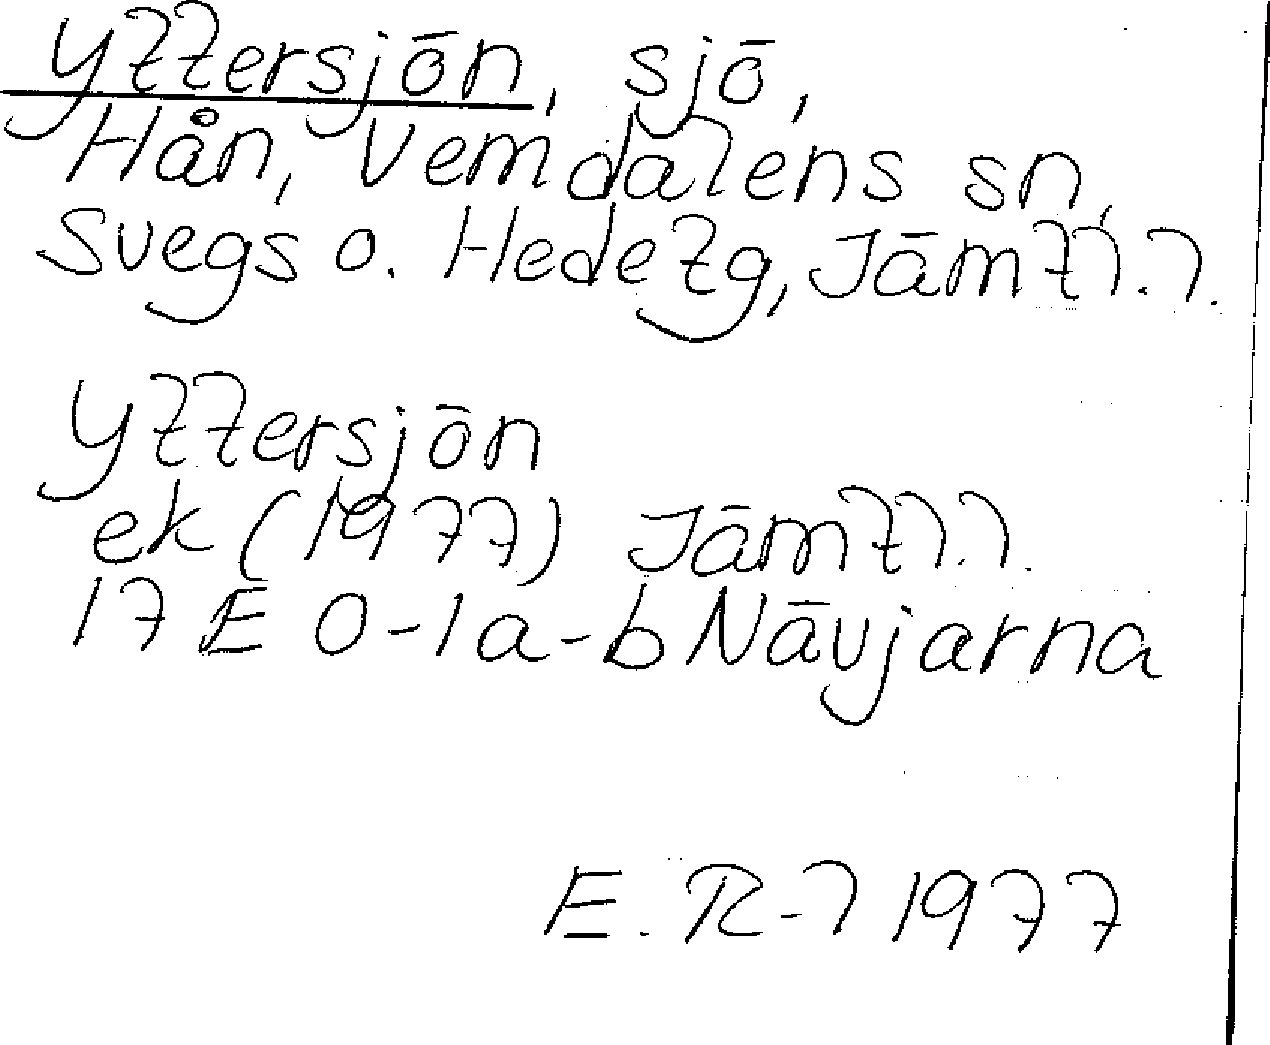 Yttersjön, sjö,
Hån, Vemdalens sn,
Svegs o. Hede tg, Jämtl.l.
Yttersjön
ek (1977) Jämtl.l.
17 E 0-1a-b Nävjarna
E. R-l 1977